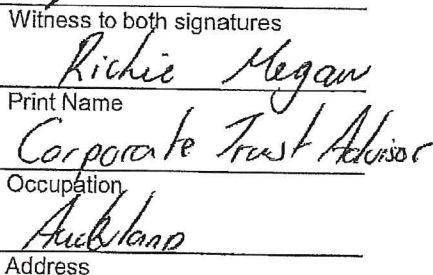 Witness to both signatures
Richie Megaw
Print Name
Corporate Trust Advisor
Occupation
Auckland
Address